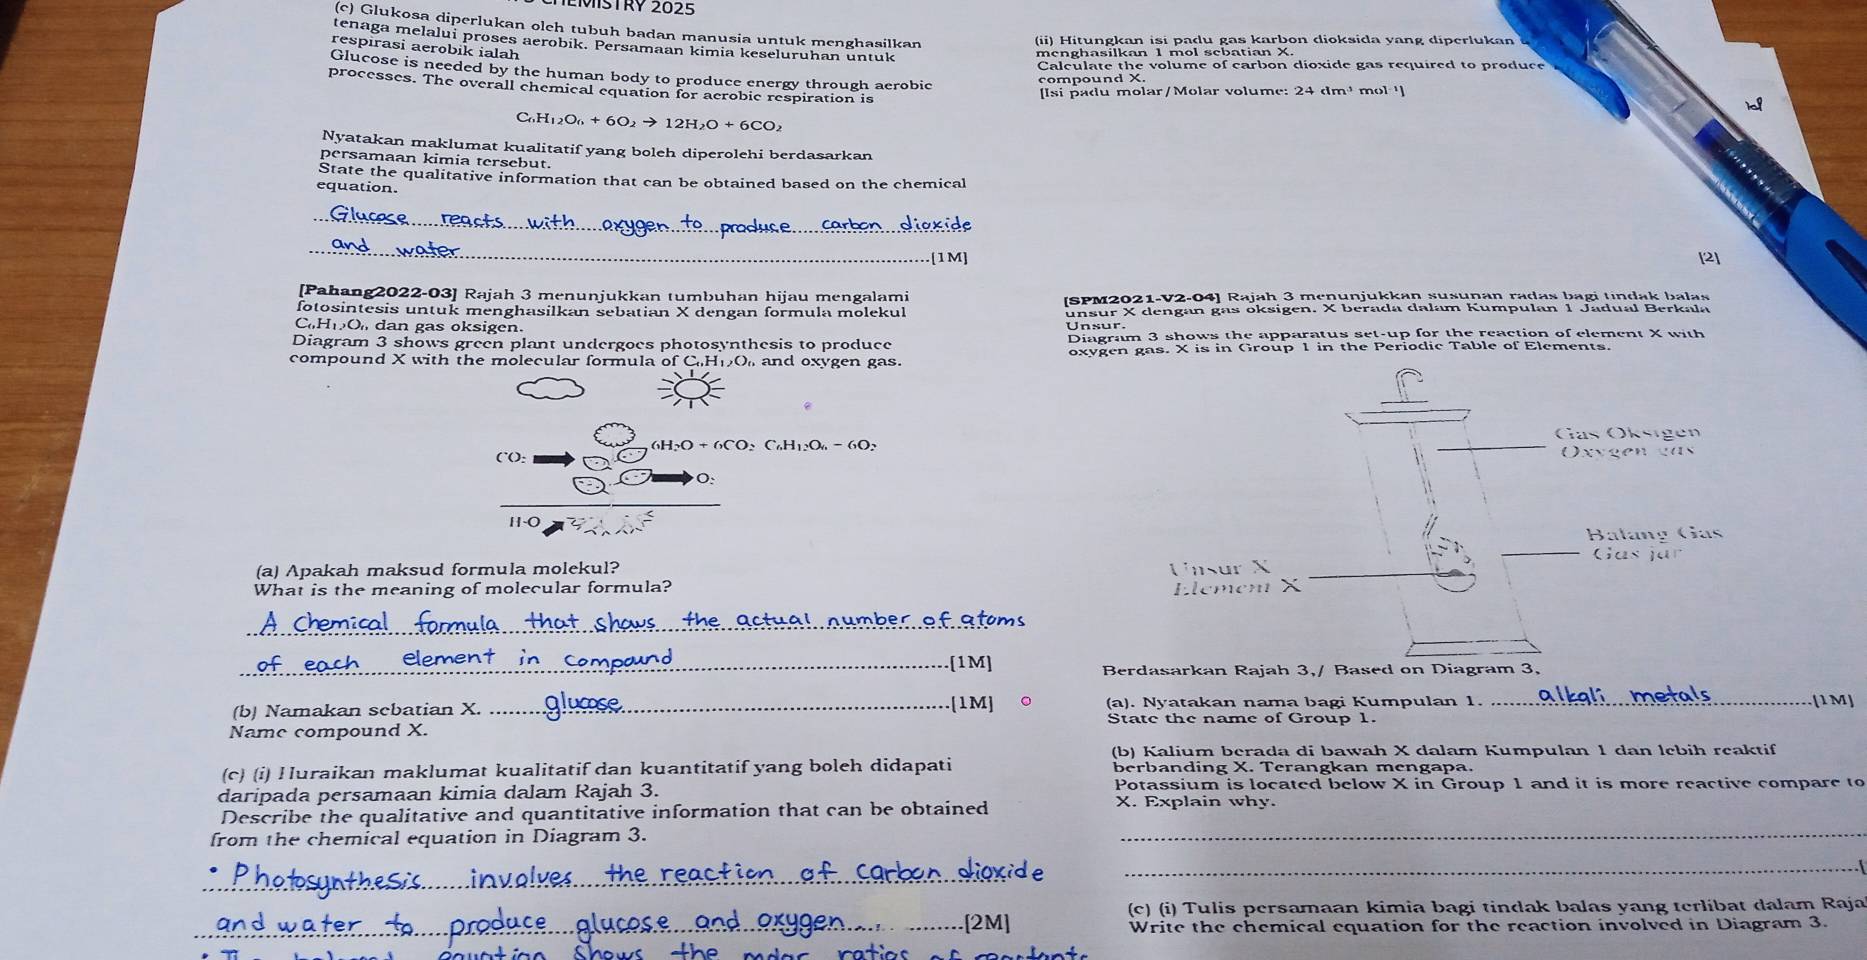 CHEMISTRY 2025
(c) Glukosa diperlukan oleh tubuh badan manusia untuk menghasilkan
tenaga melalui proses aerobik. Persamaan kimia keseluruhan untuk
respirasi aerobik ialah
Glucose is needed by the human body to produce energy through aerobic
processes. The overall chemical equation for aerobic respiration is
C₆H₁₂O₆ + 6O₂ → 12H₂O + 6CO₂
Nyatakan maklumat kualitatif yang boleh diperolehi berdasarkan
persamaan kimia tersebut.
State the qualitative information that can be obtained based on the chemical
equation.
Glucose reacts with oxygen to produce carbon dioxide
and water [1M]
[Pahang2022-03] Rajah 3 menunjukkan tumbuhan hijau mengalami
fotosintesis untuk menghasilkan sebatian X dengan formula molekul
C₆H₁₂O₆ dan gas oksigen.
Diagram 3 shows green plant undergoes photosynthesis to produce
compound X with the molecular formula of C₆H₁₂O₆ and oxygen gas.
6H₂O + 6CO₂ C₆H₁₂O₆ - 6O₂
CO₂
O₂
H₂O
(a) Apakah maksud formula molekul?
What is the meaning of molecular formula?
A chemical formula that shows the actual number of atoms
of each element in compound [1M]
(b) Namakan sebatian X. glucose [1M]
Name compound X.
(c) (i) Huraikan maklumat kualitatif dan kuantitatif yang boleh didapati
daripada persamaan kimia dalam Rajah 3.
Describe the qualitative and quantitative information that can be obtained
from the chemical equation in Diagram 3.
• Photosynthesis involves the reaction of carbon dioxide
and water to produce glucose and oxygen. [2M]
equation shows the molar ratios of reactants
(ii) Hitungkan isi padu gas karbon dioksida yang diperlukan
menghasilkan 1 mol sebatian X.
Calculate the volume of carbon dioxide gas required to produce
compound X.
[Isi padu molar/Molar volume: 24 dm³ mol⁻¹]
[2]
[SPM2021-V2-04] Rajah 3 menunjukkan susunan radas bagi tindak balas
unsur X dengan gas oksigen. X berada dalam Kumpulan 1 Jadual Berkala
Unsur.
Diagram 3 shows the apparatus set-up for the reaction of element X with
oxygen gas. X is in Group 1 in the Periodic Table of Elements.
Gas Oksigen
Oxygen gas
Balang Gas
Gas jar
Unsur X
Element X
Berdasarkan Rajah 3,/ Based on Diagram 3,
(a). Nyatakan nama bagi Kumpulan 1. alkali metals [1M]
State the name of Group 1.
(b) Kalium berada di bawah X dalam Kumpulan 1 dan lebih reaktif
berbanding X. Terangkan mengapa.
Potassium is located below X in Group 1 and it is more reactive compare to
X. Explain why.
(c) (i) Tulis persamaan kimia bagi tindak balas yang terlibat dalam Raja
Write the chemical equation for the reaction involved in Diagram 3.